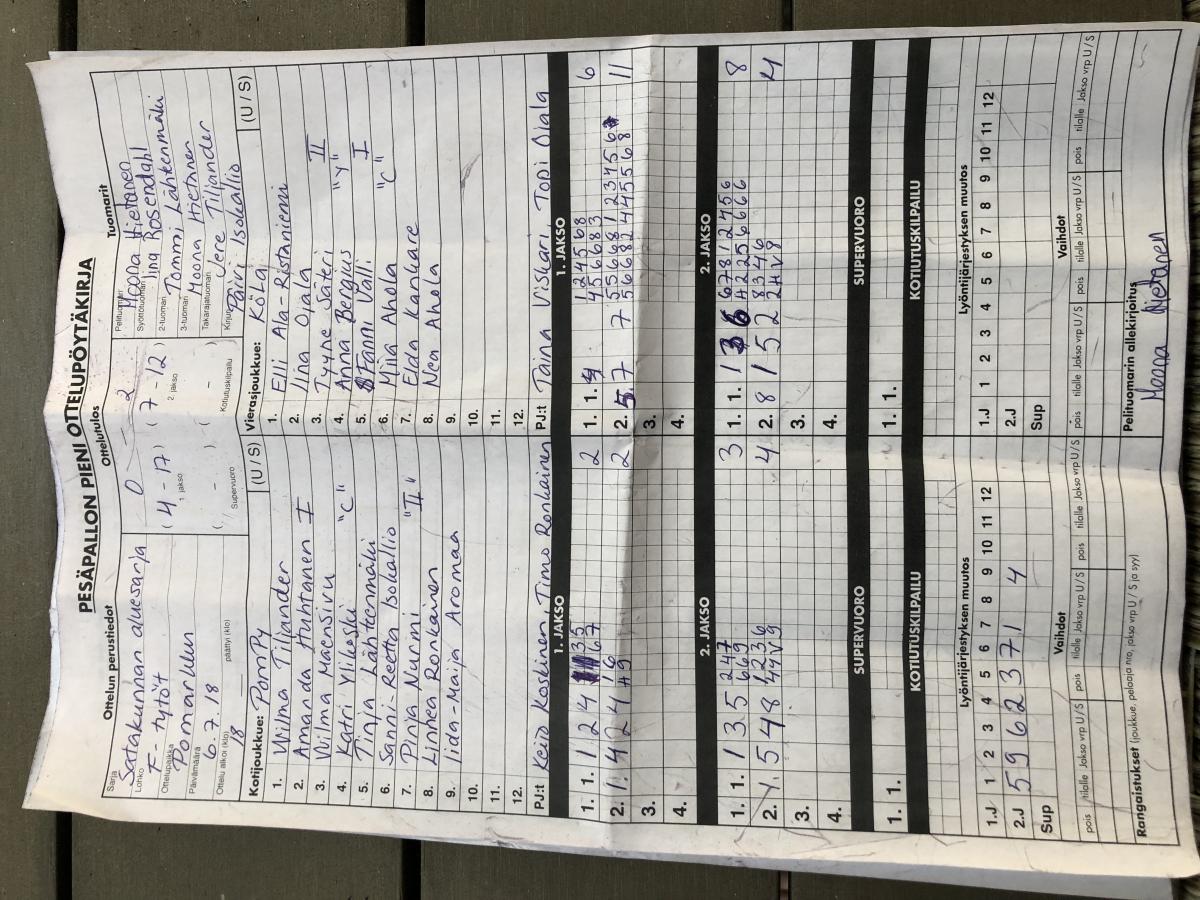 PESÄPALLON PIENI OTTELUPÖYTÄKIRJA
Ottelun perustiedot
Sarja
Satakunnan aluesarja
Lohko
F-tytöt
Ottelupaikka
Pomarkku
Päivämäärä
6.7.18
Ottelu alkoi (klo)
18
päättyi (klo)
Ottelutulos
0 - 2
( 4 - 17 ) ( 7 - 12 )
1. jakso 2. jakso
( - ) ( - )
Supervuoro Kotiutuskilpailu
Tuomarit
Pelituomari
Moona Hietanen
Syöttötuomari
Iina Rosendahl
2-tuomari
Tommi Lähtenmäki
3-tuomari
Moona Hietanen
Takarajatuomari
Jere Tiljander
Kirjuri
Päivi Isokallio
Kotijoukkue: PomPy (U / S)
1. Wilma Tiljander
2. Amanda Huhtanen I
3. Wilma Mäensivu
4. Katri Ylikoski "C"
5. Tinja Lähtenmäki
6. Sanni-Reetta Isokallio
7. Pinja Nurmi "II"
8. Linnea Ronkainen
9. Iida-Maija Aromaa
10.
11.
12.
PJ:t Keio Koskinen, Timo Ronkainen
Vierasjoukkue: KöLa (U / S)
1. Elli Ala-Ristaniemi
2. Iina Ojala
3. Tyyne Säteri II
4. Anna Bergius "Y"
5. Fanni Välli I
6. Miia Ahola "C"
7. Elda Kankare
8. Nea Ahola
9.
10.
11.
12.
PJ:t Taina Viskari, Topi Ojala
1. JAKSO
1. 1. 1 2 4 3 5 2
6 7
2. 1. 4 2 4 1 6 2
4 9
3.
4.
1. JAKSO
1. 1. 1 2 4 5 6 8 6
4 5 6 6 8 3
2. 5. 7 7 5 5 6 8 1 2 3 4 5 6 11
5 6 6 8 2 4 4 5 5 6 8
3.
4.
2. JAKSO
1. 1. 1 3 5 2 4 7 3
6 6 9
2. 5 4 8 1 2 3 6 4
4 4 V 9
3.
4.
2. JAKSO
1. 1. 1 3 6 6 7 8 1 2 4 5 6 8
4 2 2 5 6 6 6 6
2. 8 1 5 2 8 3 4 6 4
2 H V 8
3.
4.
SUPERVUORO
SUPERVUORO
1. 1.
1. 1.
KOTIUTUSKILPAILU
KOTIUTUSKILPAILU
Lyöntijärjestyksen muutos
1 2 3 4 5 6 7 8 9 10 11 12
1.J
2.J 5 9 6 2 3 7 1 4
Sup
Lyöntijärjestyksen muutos
1 2 3 4 5 6 7 8 9 10 11 12
1.J
2.J
Sup
Vaihdot
pois tilalle Jakso vrp U / S pois tilalle Jakso vrp U / S pois tilalle Jakso vrp U / S
Vaihdot
pois tilalle Jakso vrp U / S pois tilalle Jakso vrp U / S pois tilalle Jakso vrp U / S
Rangaistukset (joukkue, pelaaja nro, jakso vrp U / S ja syy)
Pelituomarin allekirjoitus
Moona Hietanen